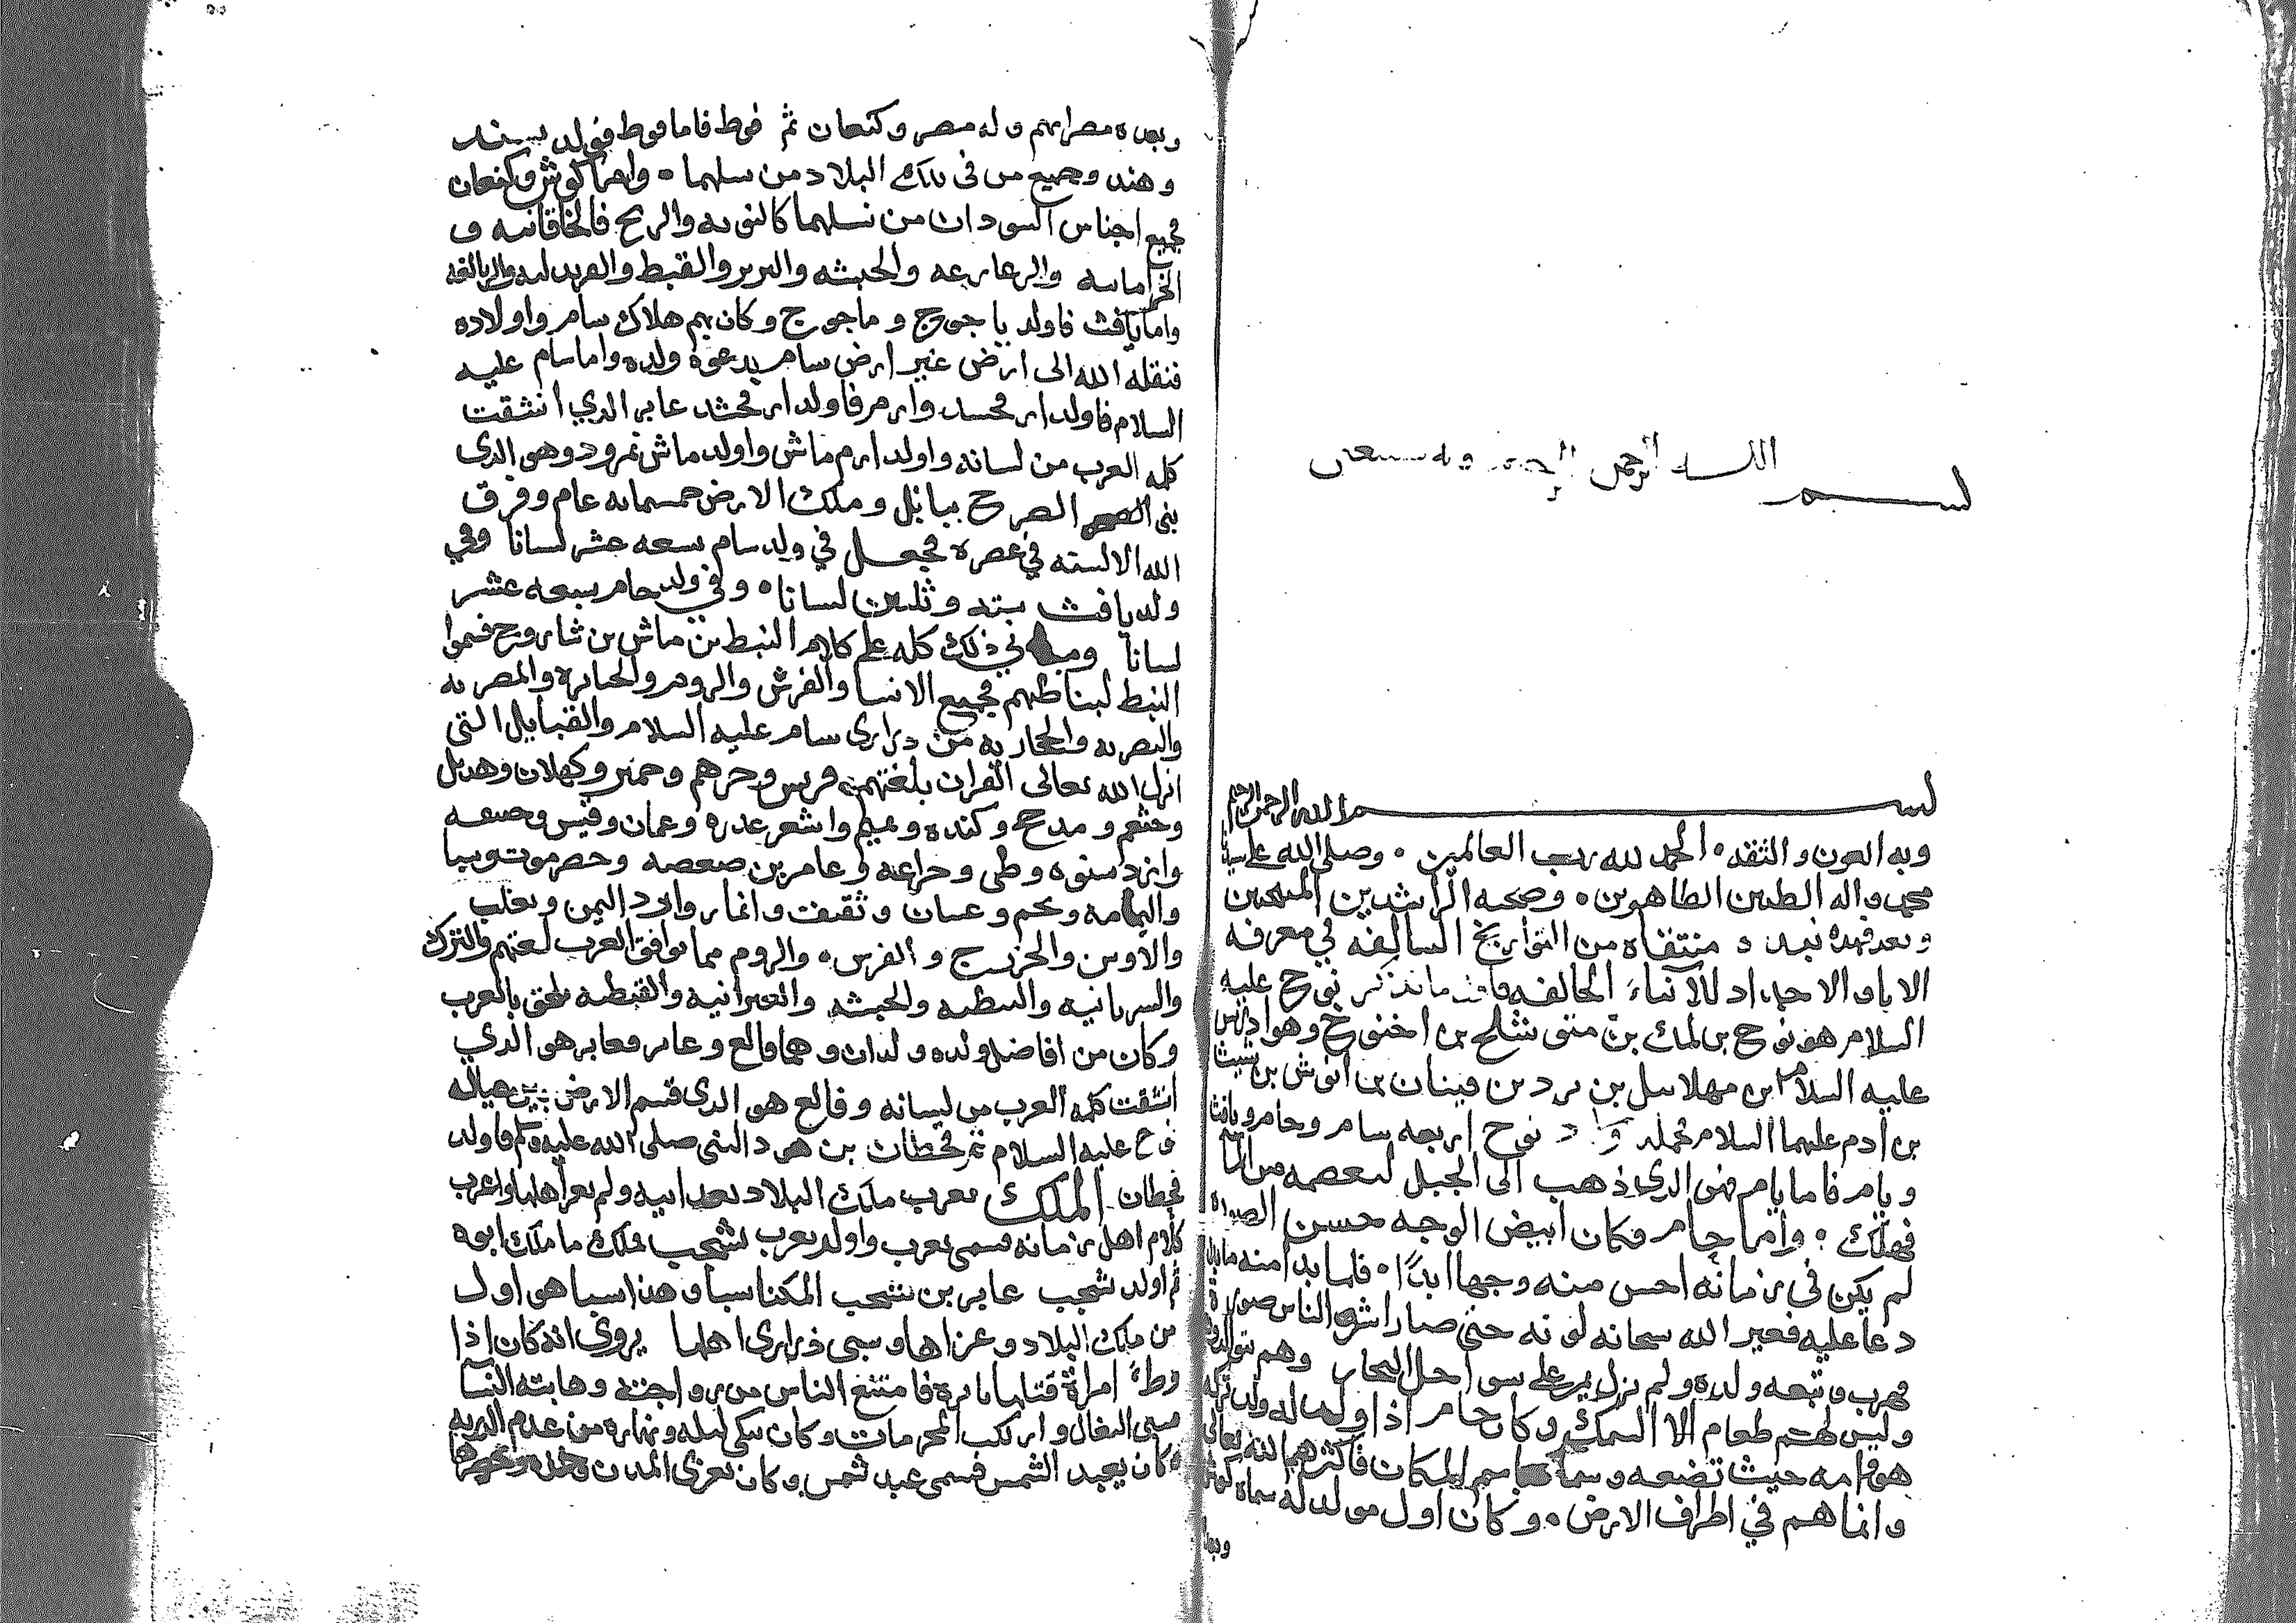 بسم الله الرحمن الرحيم وبه نستعين
بسم الله الرحمن الرحيم
وبه العون والثقه الحمد لله رب العالمين وصلى الله على سيدنا
محمد واله الطيبين الطاهرين وصحبه الراشدين
وبعد فهذه نبذه منتقاه من التواريخ السالفه في معرفه
الابا والاجداد للابناء الخالفه ما نذكر نوح عليه
السلام هو نوح بن لمك بن متوشلح بن اخنوخ وهو ادريس
عليه السلام ابن مهلاييل بن يرد بن قينان بن انوش بن شيث
بن ادم عليهما السلام نوح اربعه سام وحام ويافث
ويام فاما يام فهو الذي ذهب الى الجبل ليعصمه من الماء
فهلك واما حام فكان ابيض الوجه حسن الصوره
لم يكن في زمانه احسن منه وجها ابدًا فلما بدا منه ما بدا
دعا عليه فغير الله سبحانه لونه حتى صار اشوه الناس صورة
فهرب وتبعه ولده ولم يزل يمر على سواحل البحار وهم يتوالدون
وليس لهم طعام الا السمك وكان حام اذا ولد له ولد تركه
هو وامه حيث تضعه وسماه باسم المكان فاكثرهم الله تعالى
وانماهم في اطراف الارض وكان اول مولد له سماه كوش
وبعده
وبعده مصرايم وله مصر وكنعان ثم فوط فاما فوط فولد سند
وهند وجميع من في تلك البلاد من نسلهما واما كوش وكنعان
فجميع اجناس السودان من نسلهما كالنوبه والزنج فالخاقانيه و
والزغاوعه والحبشه والبربر والقبط
واما يافث فاولد ياجوج وماجوج وكان بهم هلاك سام واولاده
فنقله الله الى ارض غير ارض سام بدعوة ولده واما سام عليه
السلام فاولد ارفخشد وارم فاولد ارفخشد عابر الذي انشقت
كلمه العرب من لسانه واولد ارم ماش واولد ماش نمرود وهو الذي
بنى الصرح ببابل وملك الارض خمسمايه عام وفرق
الله الالسنه في عصره فجعل في ولد سام تسعه عشر لسانا وفي
ولد يافث سته وثلثين لسانا وفي ولد حام سبعه عشر
لسانا في ذلك كله على كلام النبط بن ماش بن شاروح فسموا
النبط فجميع الانبيا والفرس والروم والجبابرة والمصريه
والبصريه والحجازيه من ذراري سام عليه السلام والقبايل التي
انزل الله تعالى القران بلغتهم قريش وجرهم وحمير وكهلان وهذيل
وخثعم ومذحج وكنده وتميم واشعر عذره وعمان وقيس
وازد شنوه وطي وخزاعه وعامر بن صعصه وحضرموت وسبا
واليمامه ولخم وغسان وثقيف وانمار وازد اليمن وتغلب
والاوس والخزرج والفرس والروم مما توافق العرب لغتهم والترك
والسريانيه والنبطيه والحبشه والعبرانيه والقبطيه تلحق بالعرب
وكان من افاضل ولده ولدان وهما فالغ وعابر فعابر هو الذي
انشقت كلمه العرب من لسانه وفالغ هو الذي قسم الارض بين عياله
نوح عليه السلام ثم قحطان بن هود النبي صلى الله عليه وسلم فاولد
قحطان الملك يعرب ملك البلاد بعد ابيه
كلام اهل زمانه فسمى يعرب واولد يعرب يشجب فملك ما ملك ابوه
ثم اولد يشجب عابر بن يشجب المكنا سبا وهذا سبا هو اول
من ملك البلاد وغزاها وسبى ذراري اهلها يروي انه كان اذا
وطئ امراة قتلها بامره فامتنع الناس من زواجته وهابته النسا
البغال وارتكب المحرمات وكان يبكي ليله ونهاره من عدم الذريه
وكان يعبد الشمس فسمى عبد شمس وكان يغزي المدن